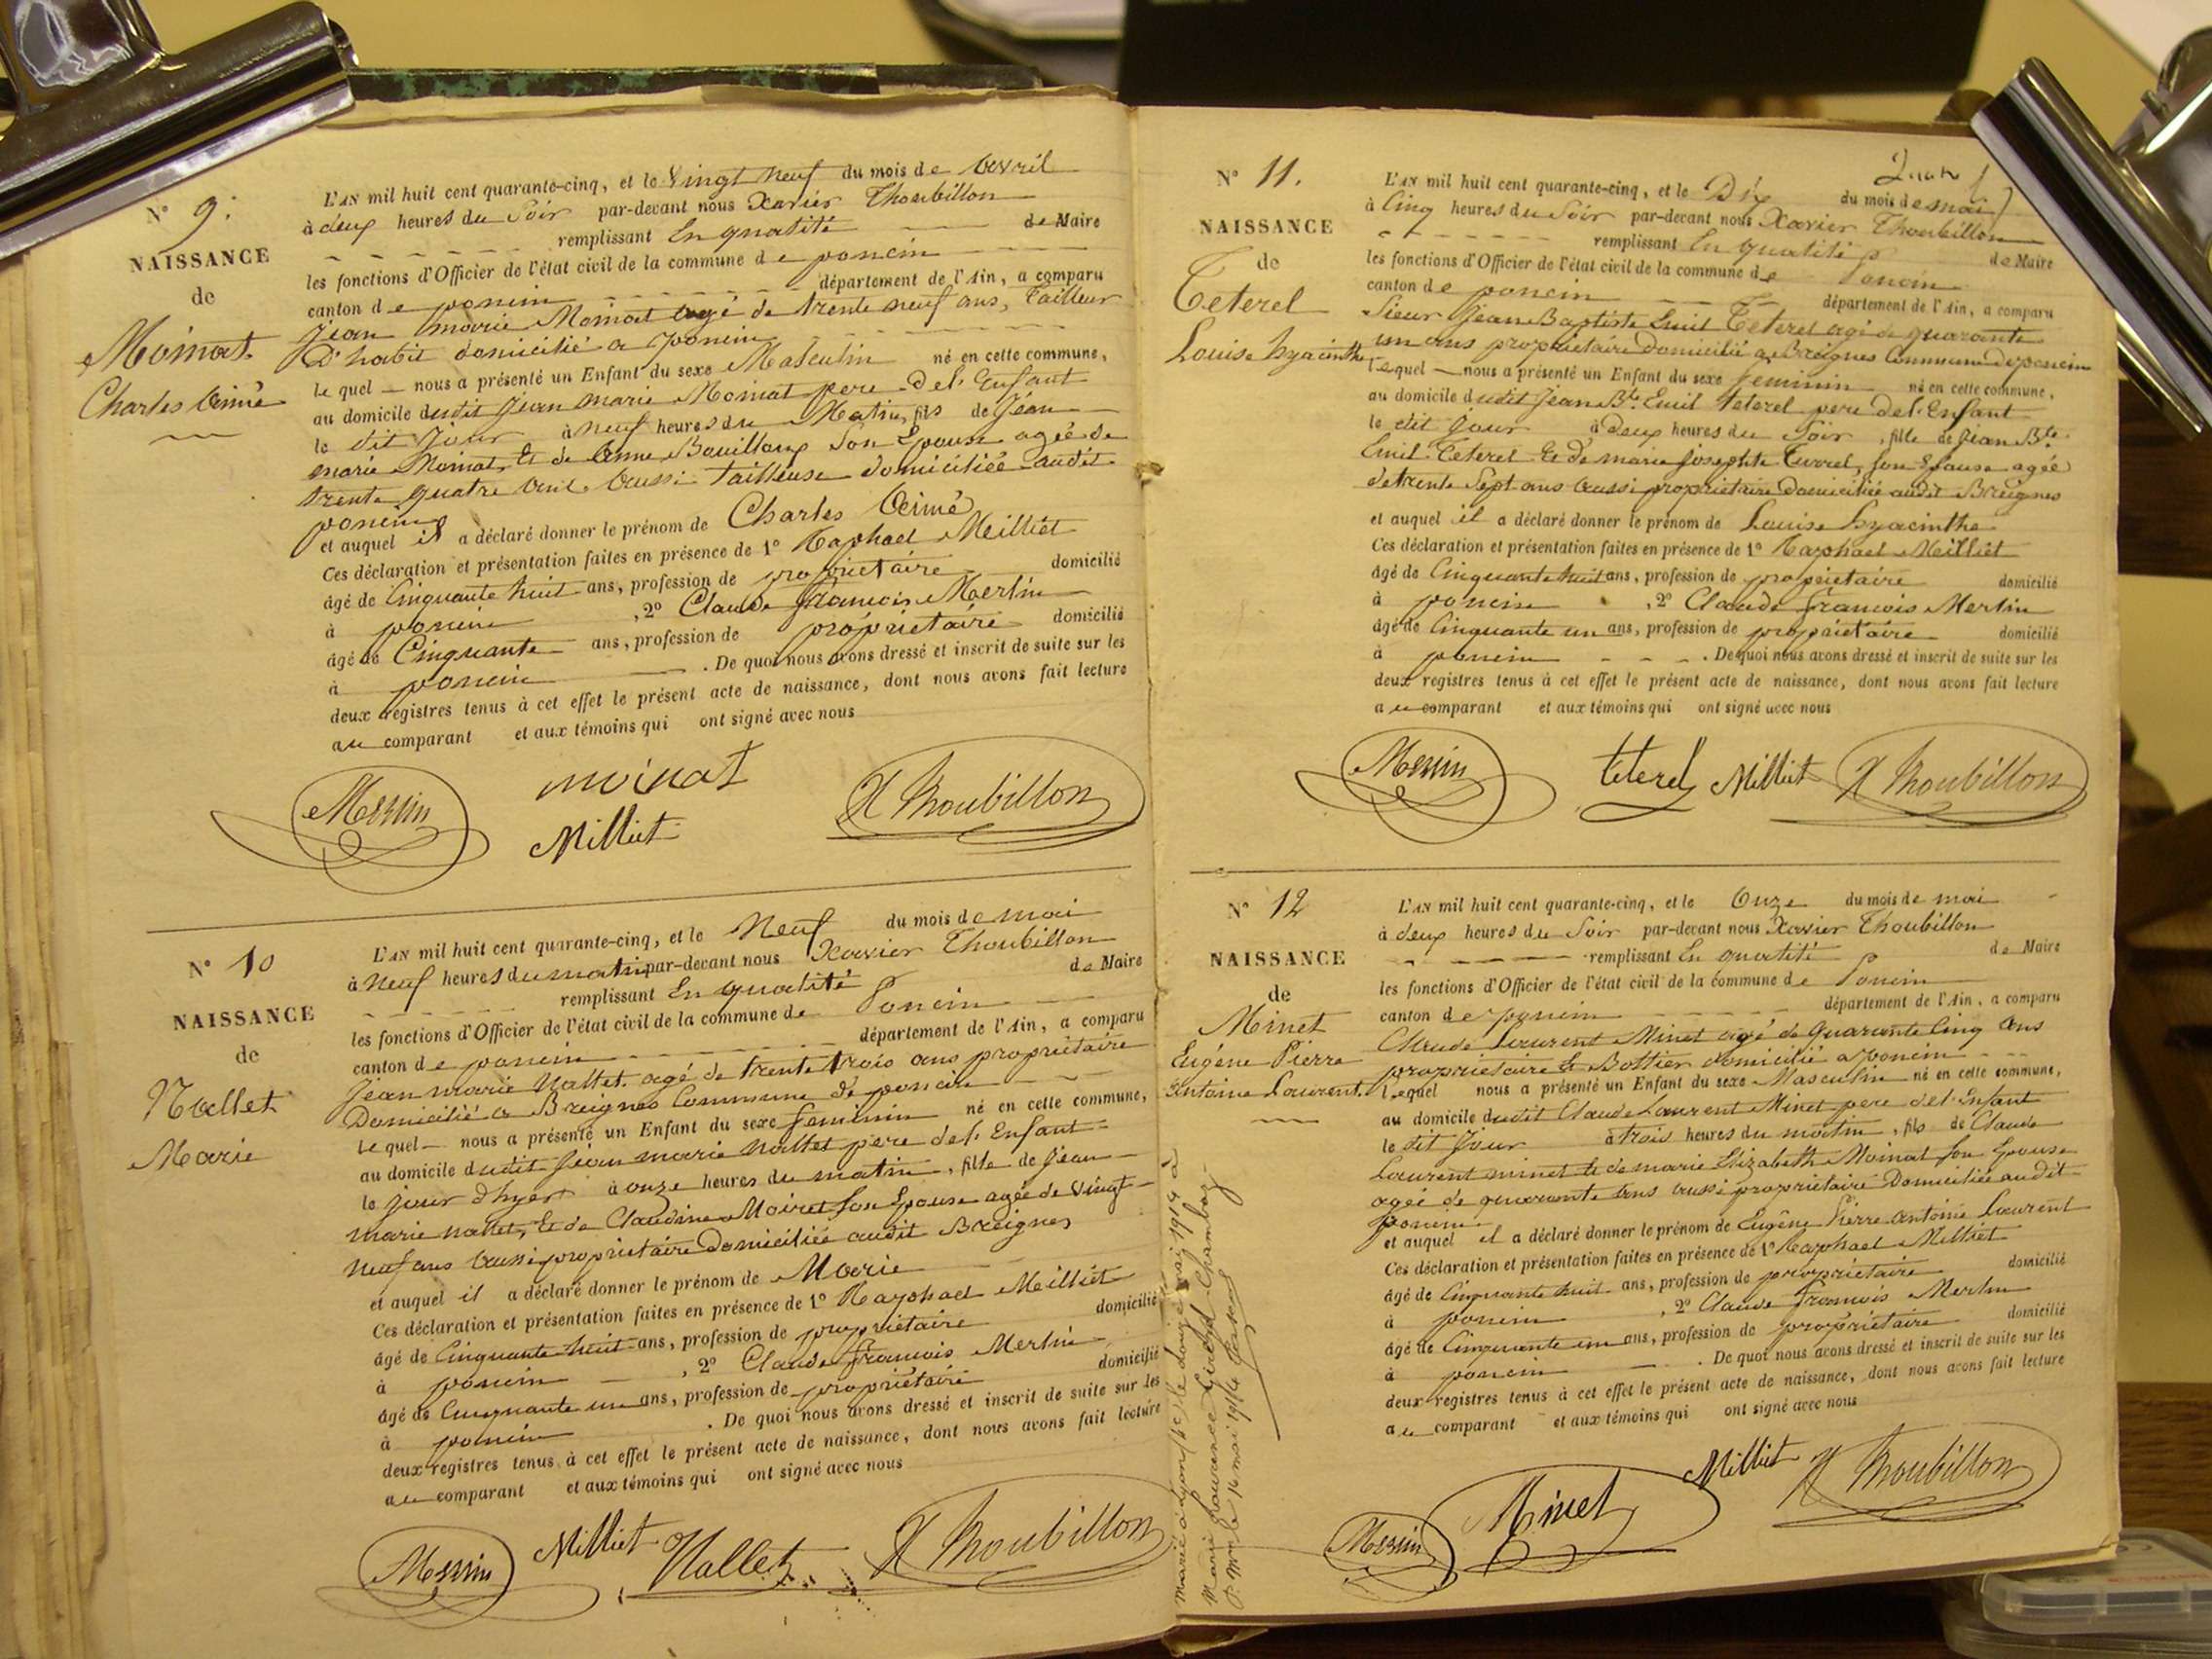 N° 9.
NAISSANCE
de
Moinat
Charles Aimé
L'AN mil huit cent quarante-cinq, et le Vingt neuf du mois de Avril
à deux heures du Soir par-devant nous Xavier Thoubillon
remplissant En qualité de Maire
les fonctions d'Officier de l'état civil de la commune de poncin
canton de poncin département de l'Ain, a comparu
Jean marie Moinat agé de trente neuf ans, Tailleur
D'habit domicilié a poncin
le quel nous a présenté un Enfant du sexe Masculin né en cette commune,
au domicile dudit Jean marie Moinat pere del. Enfant
le dit Jour à neuf heures du Matin, fils de Jean
marie Moinat, Et de Anne Bouilloux Son Epouse agée de
trente quatre ans aussi Tailleuse domiciliée audit
poncin
et auquel il a déclaré donner le prénom de Charles Aimé
Ces déclaration et présentation faites en présence de 1° Raphael Milliet
âgé de Cinquante huit ans, profession de propriétaire domicilié
à poncin , 2° Claude françois Merlin
âgé de Cinquante ans, profession de propriétaire domicilié
à poncin . De quoi nous avons dressé et inscrit de suite sur les
deux registres tenus à cet effet le présent acte de naissance, dont nous avons fait lecture
au comparant et aux témoins qui ont signé avec nous
Merlin moinat Milliet X Thoubillon
N° 10
NAISSANCE
de
Nallet
Marie
L'AN mil huit cent quarante-cinq, et le Neuf du mois de mai
à Neuf heures du matin par-devant nous Xavier Thoubillon
remplissant En qualité de Maire
les fonctions d'Officier de l'état civil de la commune de Poncin
canton de poncin département de l'Ain, a comparu
Jean marie Nallet agé de trente trois ans propriétaire
Domicilié a Breignes Commune de poncin
le quel nous a présenté un Enfant du sexe feminin né en cette commune,
au domicile dudit Jean marie Nallet pere del. Enfant
le jour d'hyer à onze heures du matin, fille de Jean
marie nallet, Et de Claudine Moiret Son Epouse agée de Vingt
neuf ans aussi propriétaire Domiciliée audit Breignes
et auquel il a déclaré donner le prénom de Marie
Ces déclaration et présentation faites en présence de 1° Raphael Milliet
âgé de Cinquante huit ans, profession de propriétaire domicilié
à poncin , 2° Claude françois Merlin
âgé de Cinquante un ans, profession de propriétaire domicilié
à poncin . De quoi nous avons dressé et inscrit de suite sur les
deux registres tenus à cet effet le présent acte de naissance, dont nous avons fait lecture
au comparant et aux témoins qui ont signé avec nous
Merlin Milliet Nallet X Thoubillon
N° 11.
NAISSANCE
de
Teterel
Louise hyacinthe
L'AN mil huit cent quarante-cinq, et le Dix du mois de mai
à Cinq heures du Soir par-devant nous Xavier Thoubillon
remplissant En qualité de Maire
les fonctions d'Officier de l'état civil de la commune de Poncin
canton de poncin département de l'Ain, a comparu
Sieur Jean Baptiste Emil Teterel agé de quarante
un ans propriétaire Domicilié a Breignes Commune de poncin
lequel nous a présenté un Enfant du sexe feminin né en cette commune,
au domicile dudit Jean Bte. Emil teterel pere del. Enfant
le dit Jour à deux heures du Soir, fille de Jean Bte.
Emil Teterel Et de marie Josephte Turrel, son Epouse agée
de trente Sept ans aussi propriétaire Domiciliée audit Breignes
et auquel il a déclaré donner le prénom de Louise hyacinthe
Ces déclaration et présentation faites en présence de 1° Raphael Milliet
âgé de Cinquante huit ans, profession de propriétaire domicilié
à poncin , 2° Claude françois Merlin
âgé de Cinquante un ans, profession de propriétaire domicilié
à poncin . De quoi nous avons dressé et inscrit de suite sur les
deux registres tenus à cet effet le présent acte de naissance, dont nous avons fait lecture
au comparant et aux témoins qui ont signé avec nous
Merlin teterel Milliet X Thoubillon
N° 12
NAISSANCE
de
Minet
Eugéne Pierre
Antoine Laurent.
L'AN mil huit cent quarante-cinq, et le Onze du mois de mai
à deux heures du Soir par-devant nous Xavier Thoubillon
remplissant En qualité de Maire
les fonctions d'Officier de l'état civil de la commune de Poncin
canton de poncin département de l'Ain, a comparu
Claude Laurent Minet agé de quarante Cinq ans
propriétaire Et Bottier domicilié a poncin
lequel nous a présenté un Enfant du sexe Masculin né en cette commune,
au domicile dudit Claude Laurent Minet pere del. Enfant
le dit Jour à trois heures du matin, fils de Claude
Laurent minet Et de marie Elizabeth Moinat son Epouse
agée de quarante ans aussi propriétaire Domiciliée audit
poncin
et auquel il a déclaré donner le prénom de Eugéne Pierre Antoine Laurent
Ces déclaration et présentation faites en présence de 1° Raphael Milliet
âgé de Cinquante huit ans, profession de propriétaire domicilié
à poncin , 2° Claude françois Merlin
âgé de Cinquante un ans, profession de propriétaire domicilié
à poncin . De quoi nous avons dressé et inscrit de suite sur les
deux registres tenus à cet effet le présent acte de naissance, dont nous avons fait lecture
au comparant et aux témoins qui ont signé avec nous
Merlin Minet Milliet X Thoubillon
Marié à Lyon le douze mai 1914 à
Marie Laurence Girard Chambaz
le 16 mai 1914